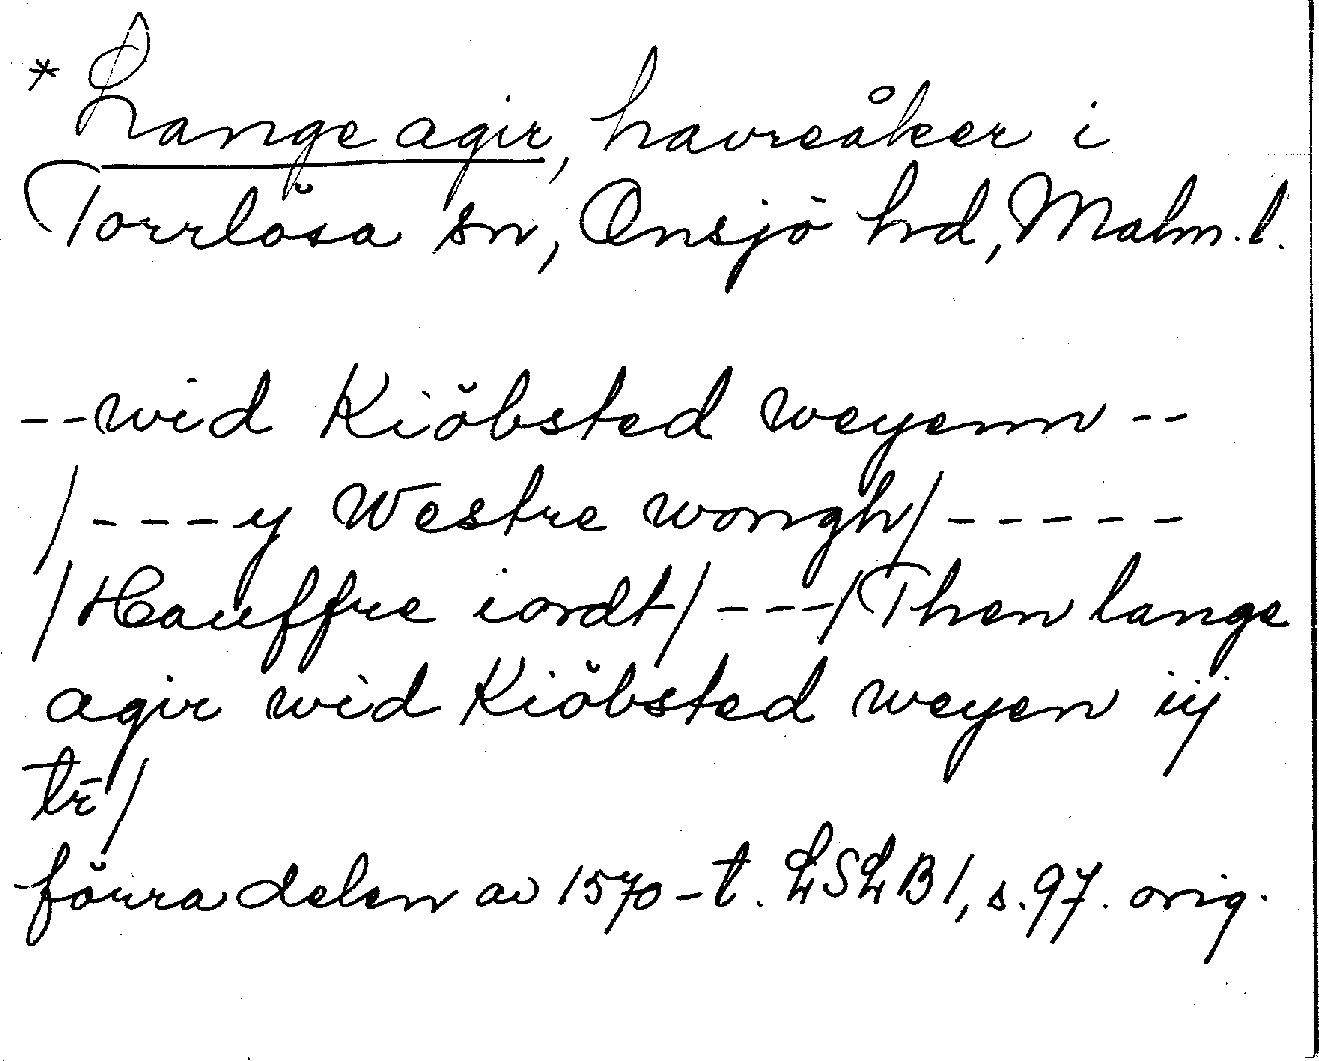 * Lange agir, havreåker i
Torrlösa sn, Onsjö hd, Malm. l.
--wid Kiöbsted weyenn --
/---y Westre wongh/-----
/Hauffre iordt/---/Then lange
agir wid Kiöbsted weyen iij
tr̄/
förra delen av 1570-t. LSLB1, s. 97. orig.